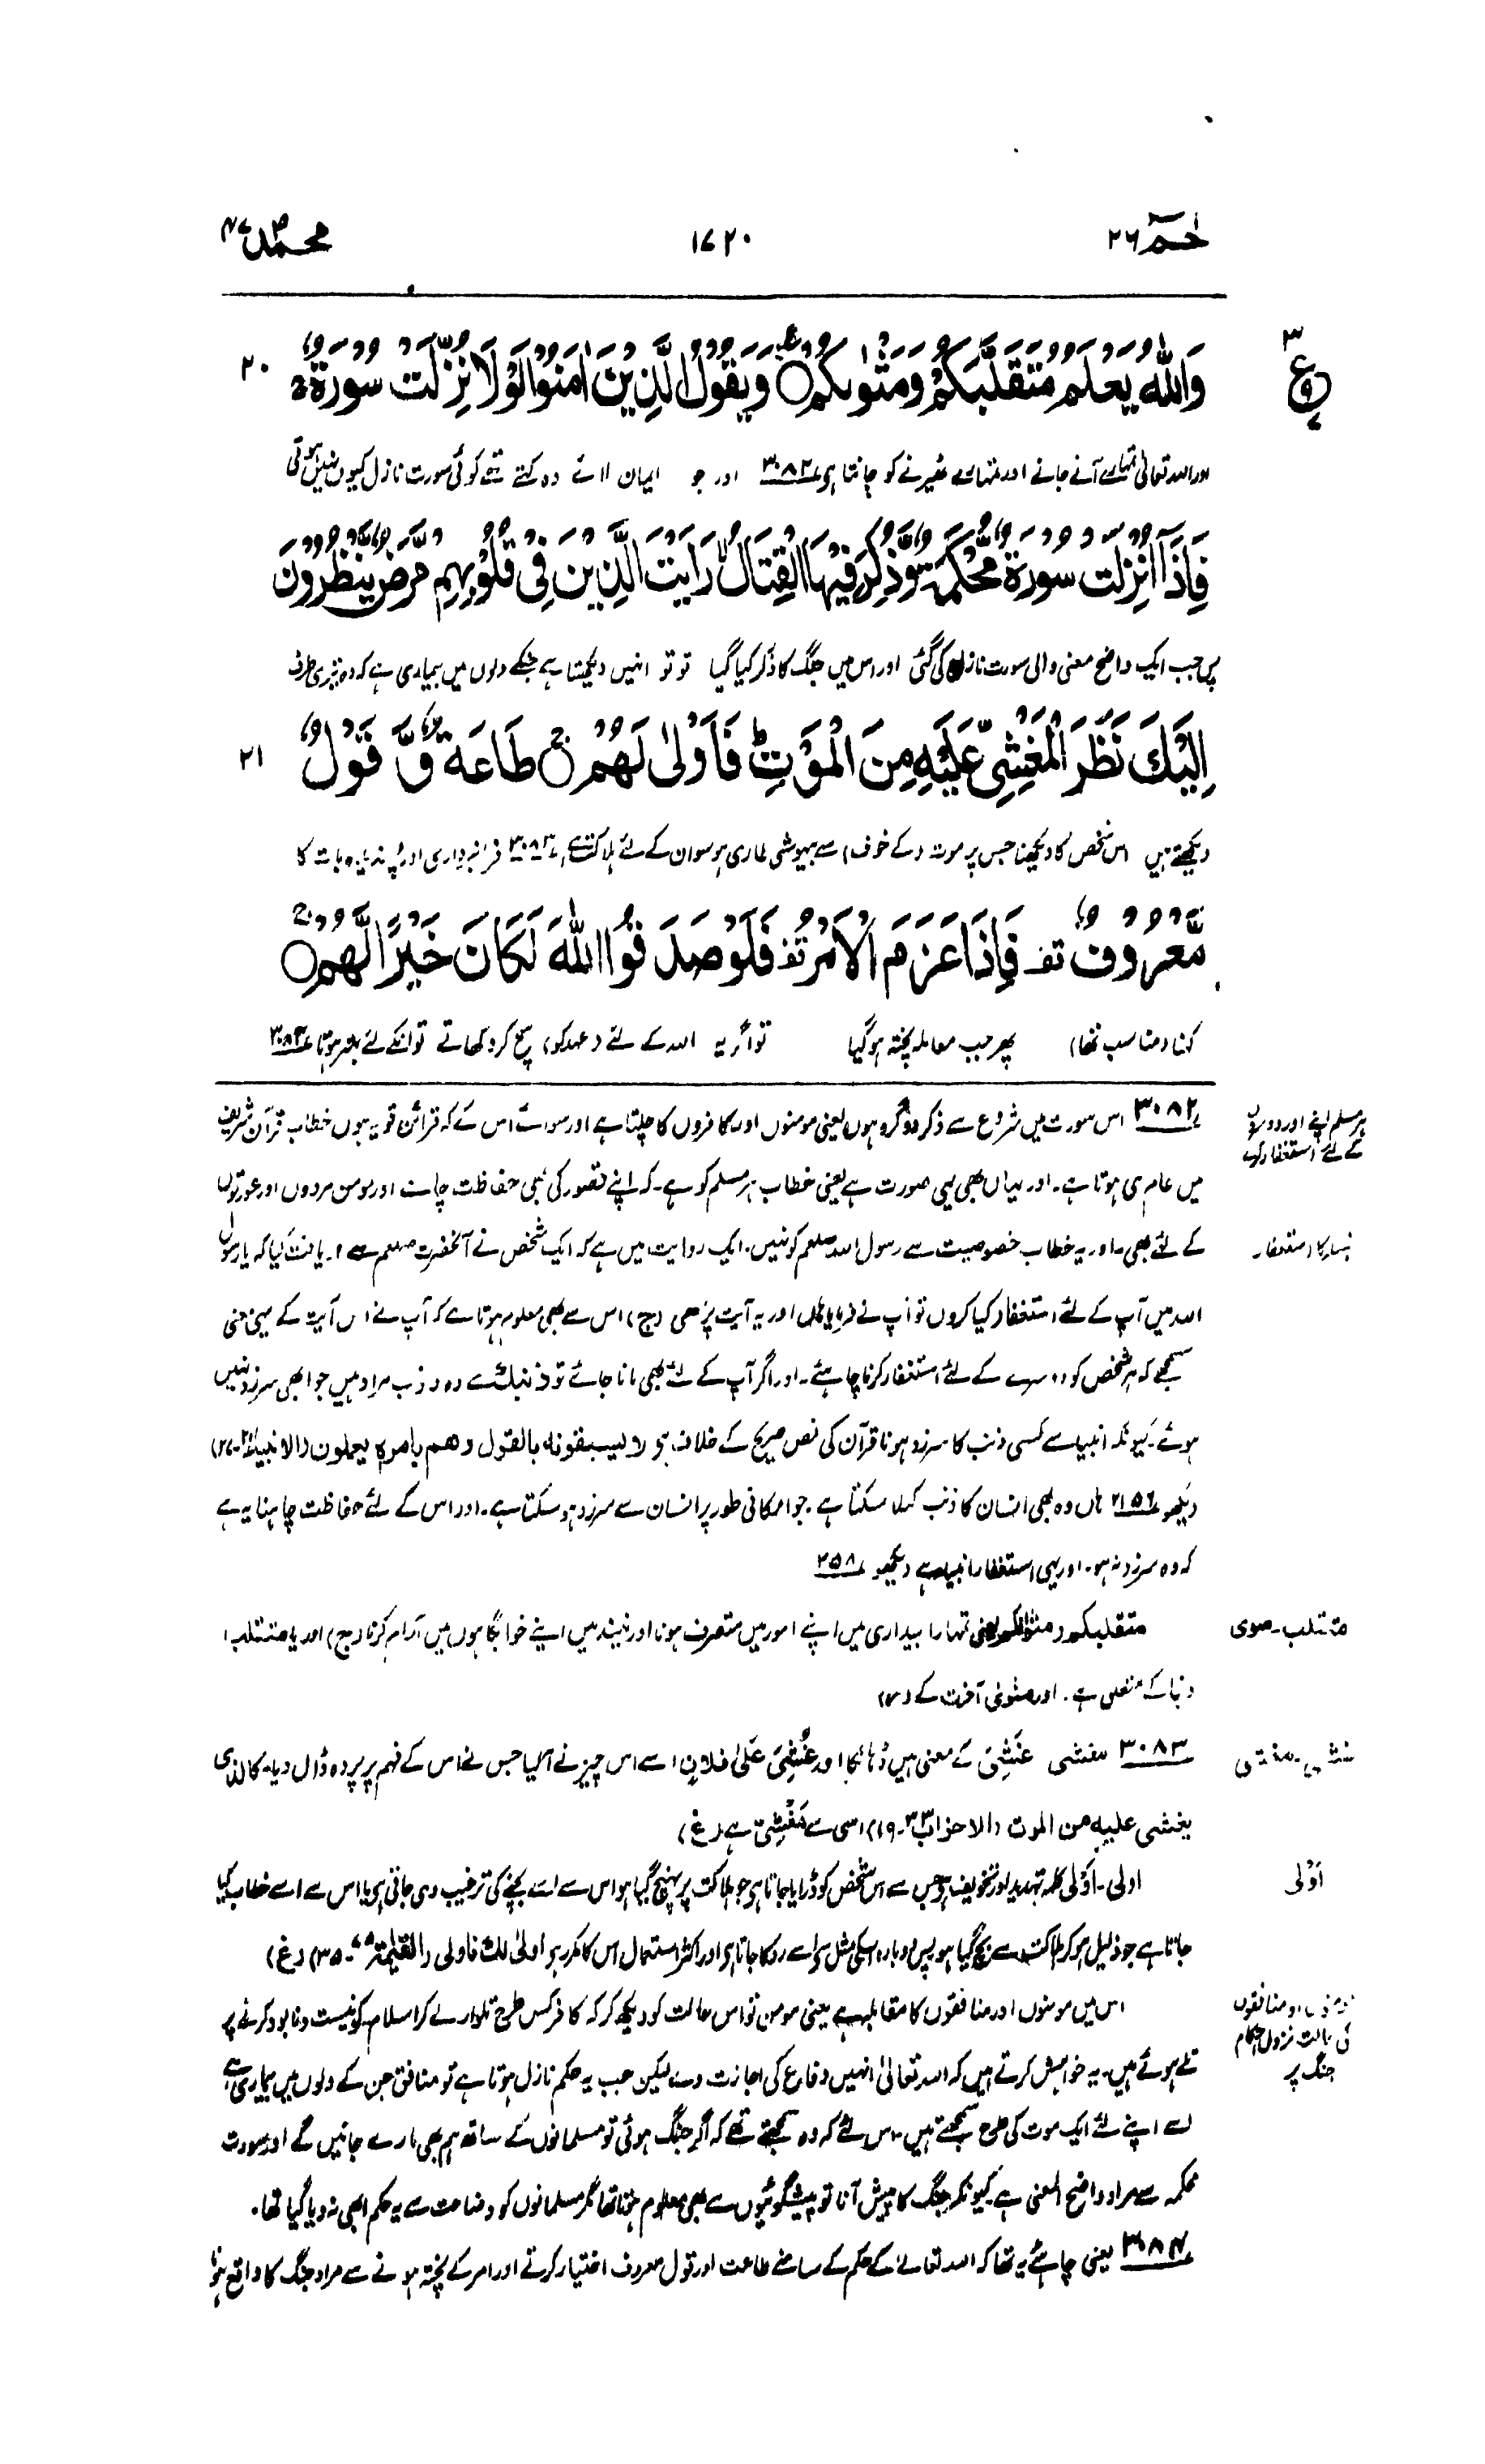 حٰمٓ ٢٦
١٧٢٠
محمدؐ ٤٧
وَاللّٰهُ يَعْلَمُ مُتَقَلَّبَكُمْ وَمَثْوٰىكُمْ ۝ وَيَقُوْلُ الَّذِيْنَ اٰمَنُوْا لَوْلَا نُزِّلَتْ سُوْرَةٌ ۚ ٢٠
اور اللہ تعالیٰ تمہارے آنے جانے اور تمہارے ٹھیرنے کو جانتا ہے ٣٠٨٢ اور جو ایمان لائے وہ کہتے تھے کوئی سورت نازل کیوں نہیں ہوتی
فَاِذَآ اُنْزِلَتْ سُوْرَةٌ مُّحْكَمَةٌ وَّذُكِرَ فِيْهَا الْقِتَالُ ۙ رَاَيْتَ الَّذِيْنَ فِيْ قُلُوْبِهِمْ مَّرَضٌ يَّنْظُرُوْنَ
پس جب ایک واضح معنی والی سورت نازل کی گئی اور اس میں جنگ کا ذکر کیا گیا تو تو انہیں دیکھتا ہے جنکے دلوں میں بیماری ہے کہ وہ تیری طرف
اِلَيْكَ نَظَرَ الْمَغْشِيِّ عَلَيْهِ مِنَ الْمَوْتِ ۭ فَاَوْلٰى لَهُمْ ۝ طَاعَةٌ وَّقَوْلٌ ٢١
دیکھتے ہیں اس شخص کا دیکھنا جس پر موت (کے خوف) سے بیہوشی طاری ہو سو ان کے لئے ہلاکت ہے ٣٠٨٣ فرمانبرداری اور پسندیدہ بات کا
مَّعْرُوْفٌ ۣ فَاِذَا عَزَمَ الْاَمْرُ ۣ فَلَوْ صَدَقُوا اللّٰهَ لَكَانَ خَيْرًا لَّهُمْ ۝
کہنا (مناسب تھا) پھر جب معاملہ پختہ ہوگیا تو اگر یہ اللہ کے لئے (عہد کو) سچ کر دکھاتے تو انکے لئے بہتر ہوتا ٣٠٨٤
٣٠٨٢ اس سورت میں شروع سے ذکر دو گروہوں یعنی مومنوں اور کافروں کا چلتا ہے اور سوائے اس کے کہ قرائن قویہ ہوں خطاب قرآن شریف
ہر مسلم اپنے اور دوسروں کے لئے استغفار کرے
میں عام ہی ہوتا ہے۔ اور یہاں بھی یہی صورت ہے یعنی خطاب ہر مسلم کو ہے۔ کہ اپنے قصور کی بھی حفاظت چاہے اور مومن مردوں اور عورتوں
کے لئے بھی۔ اور یہ خطاب خصوصیت سے رسول اللہ صلعم کو نہیں۔ ایک روایت میں ہے کہ ایک شخص نے آنحضرت صلعم سے دریافت کیا کہ یا رسول
انبیاء کا استغفار
اللہ میں آپ کے لئے استغفار کیا کروں تو آپ نے فرمایا ہاں اور یہ آیت پڑھی (ج) اس سے بھی معلوم ہوتا ہے کہ آپ نے اس آیت کے یہی معنی
سمجھے کہ ہر شخص کو دوسرے کے لئے استغفار کرنا چاہئے۔ اور اگر آپ کے لئے بھی مانا جائے تو ذنبك سے وہ ذنب مراد ہیں جو ابھی سرزد نہیں
ہوئے۔ کیونکہ انبیاء سے کسی ذنب کا سرزد ہونا قرآن کی نص صریح کے خلاف ہے لا يسبقونه بالقول وهم بامره يعملون (الانبیاء ٢١-٢٧)
دیکھو ٢١٥٦ ہاں وہ بھی انسان کا ذنب کہلا سکتا ہے۔ جو امکانی طور پر انسان سے سرزد ہو سکتا ہے۔ اور اس کے لئے حفاظت چاہنا یہ ہے
کہ وہ سرزد نہ ہو۔ اور یہی استغفار انبیاء ہے دیکھو ٢٥٨
متقلبكم ومثواكم یعنی تمہارا بیداری میں اپنے امور میں متصرف ہونا اور نیند میں اپنے خوابگاہوں میں آرام کرنا (ج) اور یا متقلب
متقلب۔ مثوی
دنیا کے متعلق ہے۔ اور مثوٰی آخرت کے (ر)
٣٠٨٣ مغشی غُشِيَ کے معنی ہیں ڈھانکا اور غُشِيَ عَلىٰ فلانٍ اسے اس چیز نے آ لیا جس نے اس کے فہم پر پردہ ڈال دیا۔ كالذي
غشی۔ مغشی
يغشى عليه من الموت (الاحزاب ٣٣-١٩) اسی سے مَغْشِيّ ہے (غ)
اولی۔ اَوْلٰی کلمہ تہدید اور تخویف ہے جس سے اس شخص کو ڈرایا جاتا ہے جو ہلاکت پر پہنچ گیا ہو اس سے اسے بچنے کی ترغیب دی جاتی ہے یا اس سے اسے خطاب کیا
اَوْلٰی
جاتا ہے جو ذلیل ہو کر ہلاکت سے بچ گیا ہو پس دوبارہ اسکی مثل سے اسے روکا جاتا ہے اور اکثر استعمال اس کا مکرر ہے اولىٰ لك فاولى (القیٰمۃ ٧٥-٣٥) (غ)
اس میں مومنوں اور منافقوں کا مقابلہ ہے یعنی مومن تو اس حالت کو دیکھ کر کہ کافر کس طرح تلوار لے کر اسلام کو نیست و نابود کرنے پر
مومنوں اور منافقوں کی حالت نزول احکام جنگ پر
تلے ہوئے ہیں۔ یہ خواہش کرتے ہیں کہ اللہ تعالیٰ انہیں دفاع کی اجازت دے لیکن جب یہ حکم نازل ہوتا ہے تو منافق جن کے دلوں میں بیماری ہے
اسے اپنے لئے ایک موت کی طرح سمجھتے ہیں۔ اس لئے کہ وہ سمجھتے تھے کہ اگر جنگ ہوئی تو مسلمانوں کے ساتھ ہم بھی مارے جائیں گے اور سورت
محکمہ سے مراد واضح المعنی ہے کیونکہ جنگ کا پیش آنا تو پیشگوئیوں سے بھی معلوم ہوتا تھا مگر مسلمانوں کو وضاحت سے یہ حکم ابھی نہ دیا گیا تھا۔
٣٠٨٤ یعنی چاہئے یہ تھا کہ اللہ تعالےٰ کے حکم کے سامنے طاعت اور قول معروف اختیار کرتے اور امر کے پختہ ہونے سے مراد جنگ کا واقع ہونا